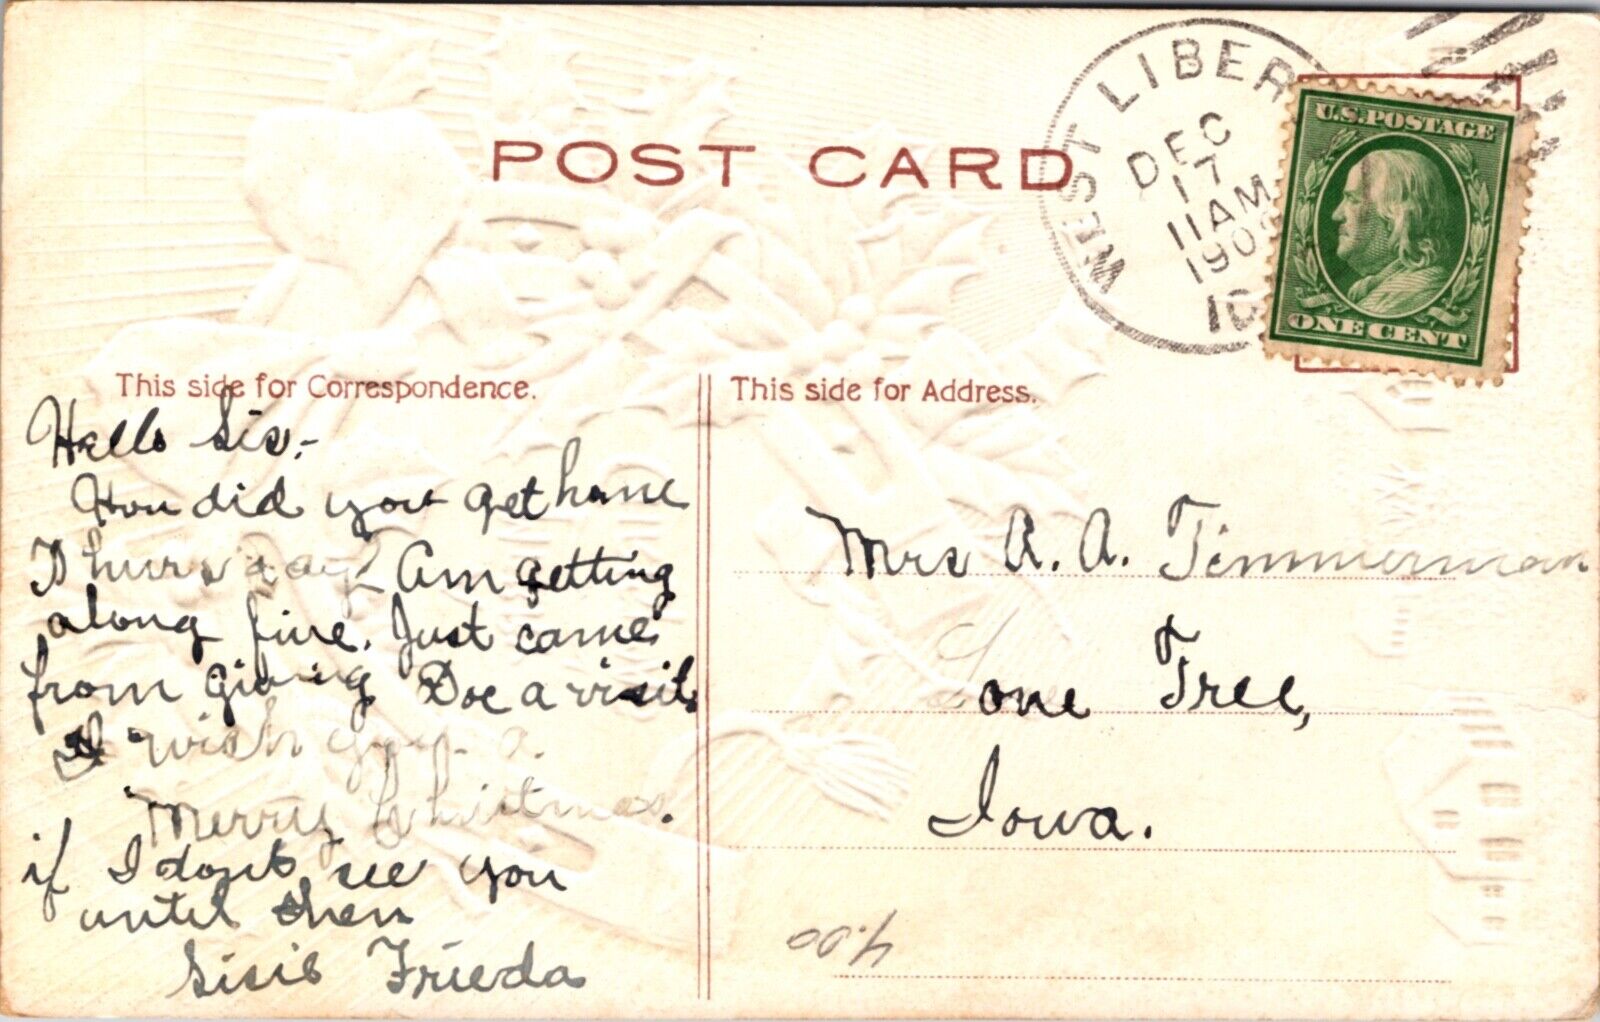 POST CARD
WEST LIBER
DEC
17
11 AM
190
U.S. POSTAGE
ONE CENT
This side for Correspondence.
This side for Address.
Hello Sis,-
How did you get home
Thursday? Am getting
along fine. Just came
from giving Doc a visit
I wish you a
Merry Christmas.
if I dont see you
until then
Sisie Frieda
Mrs A. A. Timmerman
Lone Tree,
Iowa.
4.00